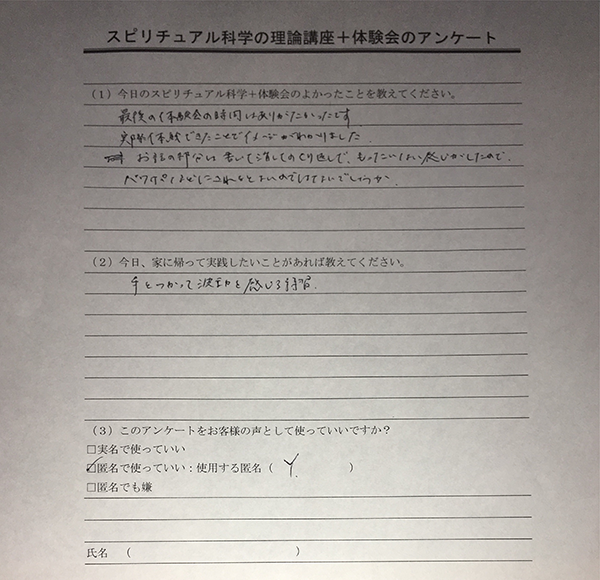 スピリチュアル科学の理論講座＋体験会のアンケート
（1）今日のスピリチュアル科学＋体験会のよかったことを教えてください。
最後の体験会の時間はありがたかったです
実際体験できたことでイメージがわかりました
お話の部分は書いて消してのくり返しで、もったいない感じがしたので、
パワポなどにされるとよいのではないでしょうか
（2）今日、家に帰って実践したいことがあれば教えてください。
手をつかって波動を感じる練習.
（3）このアンケートをお客様の声として使っていいですか？
□実名で使っていい
☑匿名で使っていい：使用する匿名（ Y. ）
□匿名でも嫌
氏名 （ ）